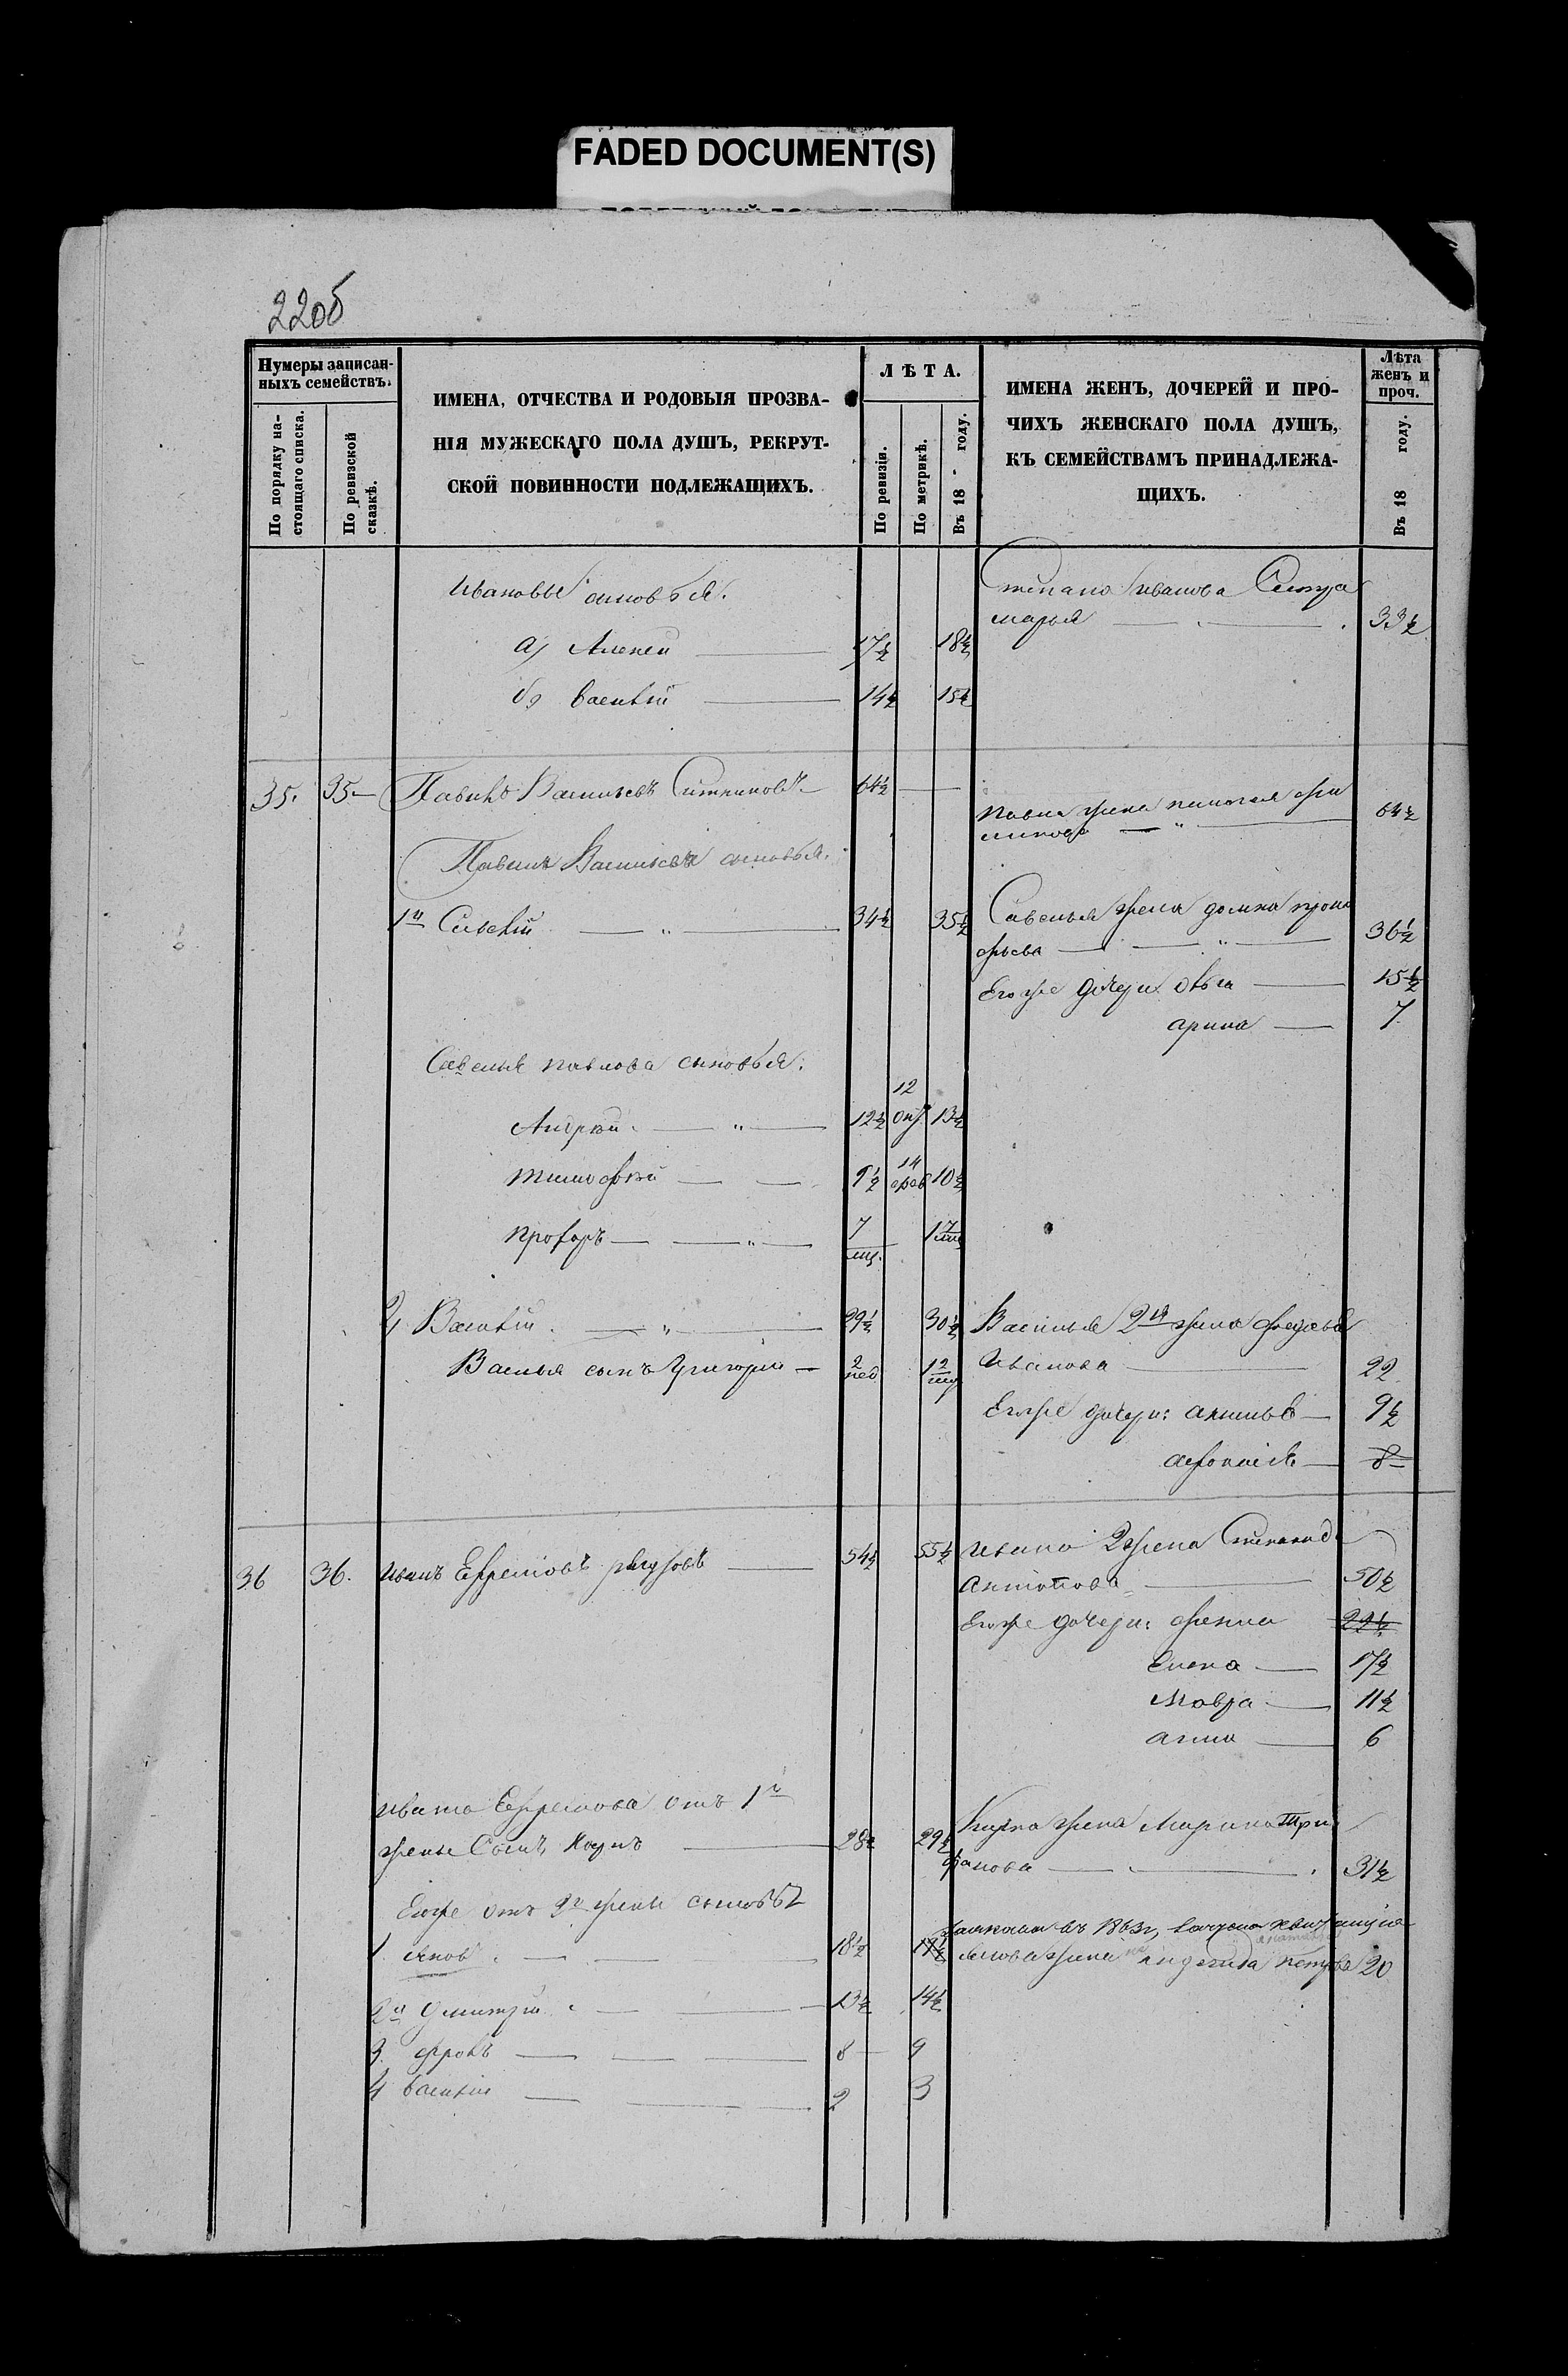 FADED DOCUMENT(S)
220б
Нумеры записан-
ныхъ семействъ.
По порядку на-
стоящаго списка.
По ревизской
сказкѣ.
ИМЕНА, ОТЧЕСТВА И РОДОВЫЯ ПРОЗВА-
НІЯ МУЖЕСКАГО ПОЛА ДУШЪ, РЕКРУТ-
СКОЙ ПОВИННОСТИ ПОДЛЕЖАЩИХЪ.
ЛѢТА.
По ревизіи.
По метрикѣ.
Въ 18 - году.
ИМЕНА ЖЕНЪ, ДОЧЕРЕЙ И ПРО-
ЧИХЪ ЖЕНСКАГО ПОЛА ДУШЪ,
КЪ СЕМЕЙСТВАМЪ ПРИНАДЛЕЖА-
ЩИХЪ.
Лѣта
женъ и
проч.
Въ 18 году.
Ивановы сыновья.
Степана Иванова Сестра
марья 33½
а) Алексей 17½ 18½
б) Василій 14½ 15½
35. 35 Павилъ Васильевъ Ситниковъ 64½
Павла жена пелагея
64½
Павила Васильева сыновья.
1й Савелій 34½ 35½
Савелья жена домна прохо
рьева 36½
Егоже дочери 15½
арина 7
Савелья павлова сыновья:
Андрей 12½ 12 окт 13½
тимофей 9½ 14 фев 10½
прохоръ 7 мц. 1 7 мц
2, Василій 29½ 30½
Василья 2я жена федосья
Иванова 22
Василья сынъ Григорій 2 нед 1 2 нед
Егоже дочери: акилина 9½
афониса 8
36 36. иванъ Ефремовъ 54½ 55½
ивана 2 жена Степанид
антонова 50½
Егоже дочери: фекла 22½
Елена 17½
Мавра 11½
анна 6
ивана Ефремова отъ 1й
жены Сынъ Карпъ 28½ 29½
Карпа жена Марина Три
фанова 31½
Егоже отъ 2й жены сыновья
1 яковъ 18½ 19½
въ 1863г,
Якова жена петрова 20
2й дмитрій 13½ 14½
3. фролъ 8 9
4 василій 2 3